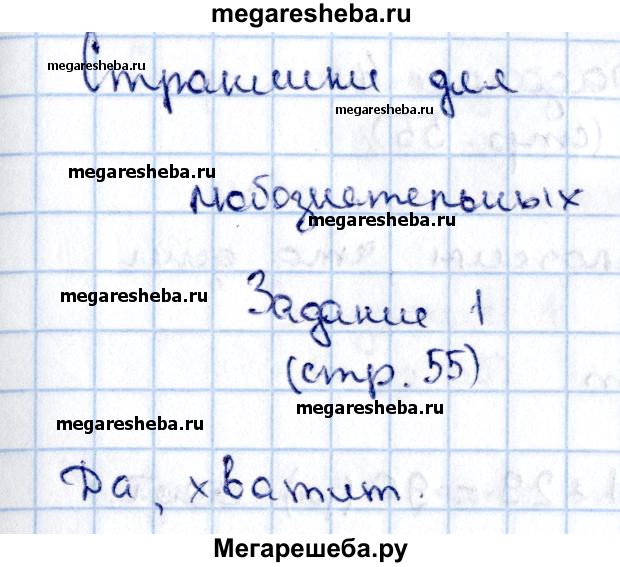 megaresheba.ru
megaresheba.ru
Странички для
megaresheba.ru
megaresheba.ru
любознательных
megaresheba.ru
megaresheba.ru
Задание 1
(стр. 55)
megaresheba.ru
megaresheba.ru
Да, хватит.
Мегарешеба.ру